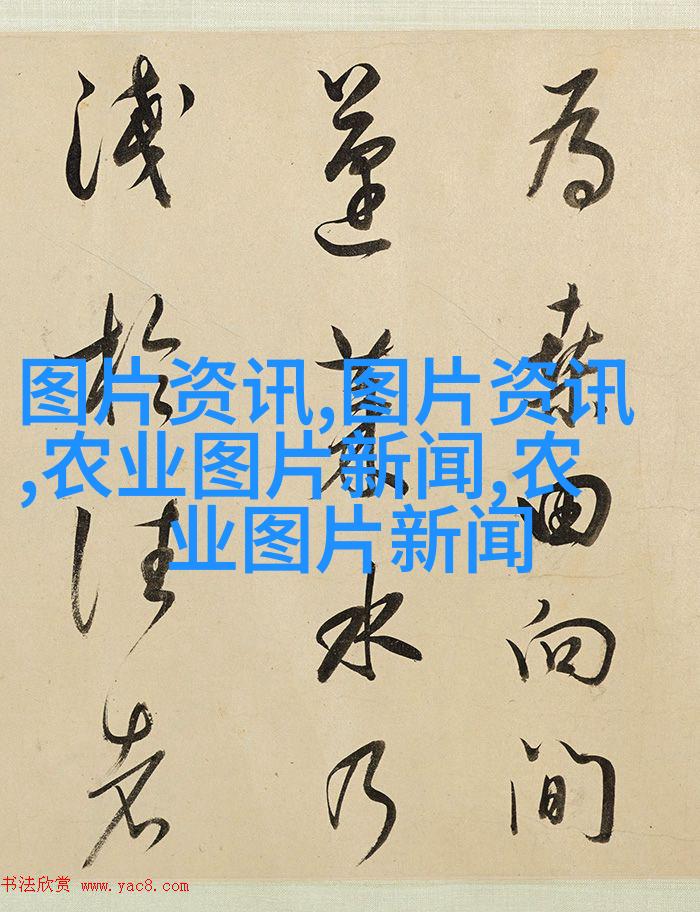 為桑田向間
蓬萊水乃
淺於往者
图片资讯,图片资讯
,农业图片新闻,农
业图片新闻
书法欣赏 www.yac8.com